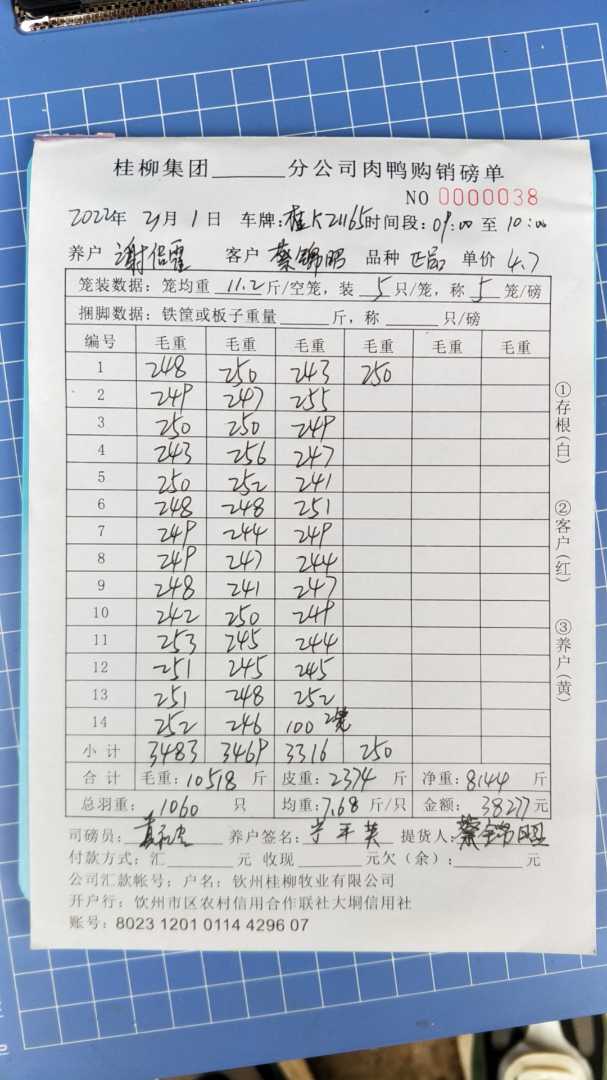 桂柳集团______分公司肉鸭购销磅单
NO 0000038
2022年 2月 1日 车牌:桂K21165 时间段:09:00 至 10:00
养户 谢信霍 客户 蔡锦昭 品种 正品 单价 4.7
笼装数据:笼均重 11.2 斤/空笼,装 5 只/笼,称 5 笼/磅
捆脚数据:铁筐或板子重量______斤,称______只/磅
编号 毛重 毛重 毛重 毛重 毛重 毛重
1 248 250 243 250
2 249 247 255
3 250 250 249
4 243 256 247
5 250 252 241
6 248 248 251
7 249 244 249
8 249 247 244
9 248 241 247
10 242 250 249
11 253 245 244
12 251 245 245
13 251 248 252
14 252 246 100 2笼
小计 3483 3469 3316 250
合计 毛重:10518 斤 皮重:2374 斤 净重:8144 斤
总羽重: 1060 只 均重:7.68 斤/只 金额: 38277元
司磅员: 养户签名: 提货人:蔡锦昭
付款方式:汇______元 收现______元欠(余):______元
公司汇款帐号:户名:钦州桂柳牧业有限公司
开户行:钦州市区农村信用合作联社大垌信用社
账号:8023 1201 0114 4296 07
①存根(白)
②客户(红)
③养户(黄)